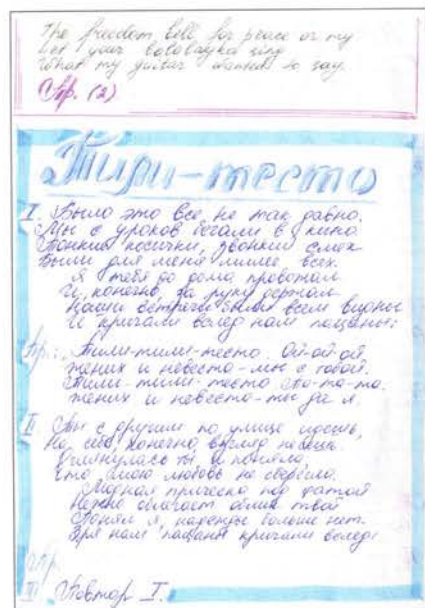 The freedom bell for peace or my
Let your balalayka sing
What my guitar wanted to say.
Пр. (2)
Тили-тесто
I. Было это все не так давно.
Мы с уроков бегали в кино.
Тонкие косички, звонкий смех
Были для меня милее всех.
Я тебя до дома провожал
И, конечно, за руку держал
Наши встречи были всем видны
И кричали вслед нам пацаны:
Пр.: Тили-тили-тесто. Ой-ой-ой
жених и невеста-мы с тобой.
Тили-тили-тесто. Та-та-та.
жених и невеста-ты да я.
II Ты с другим по улице идешь,
На себе, конечно, взгляд
Оглянулась ты и поняла
Что мою любовь не сберегла.
Модная прическа под фатой
Нежно облегает облик твой
Понял я, надежды больше нет.
Зря нам пацаны кричали вслед:
Пр.
III Повтор I.